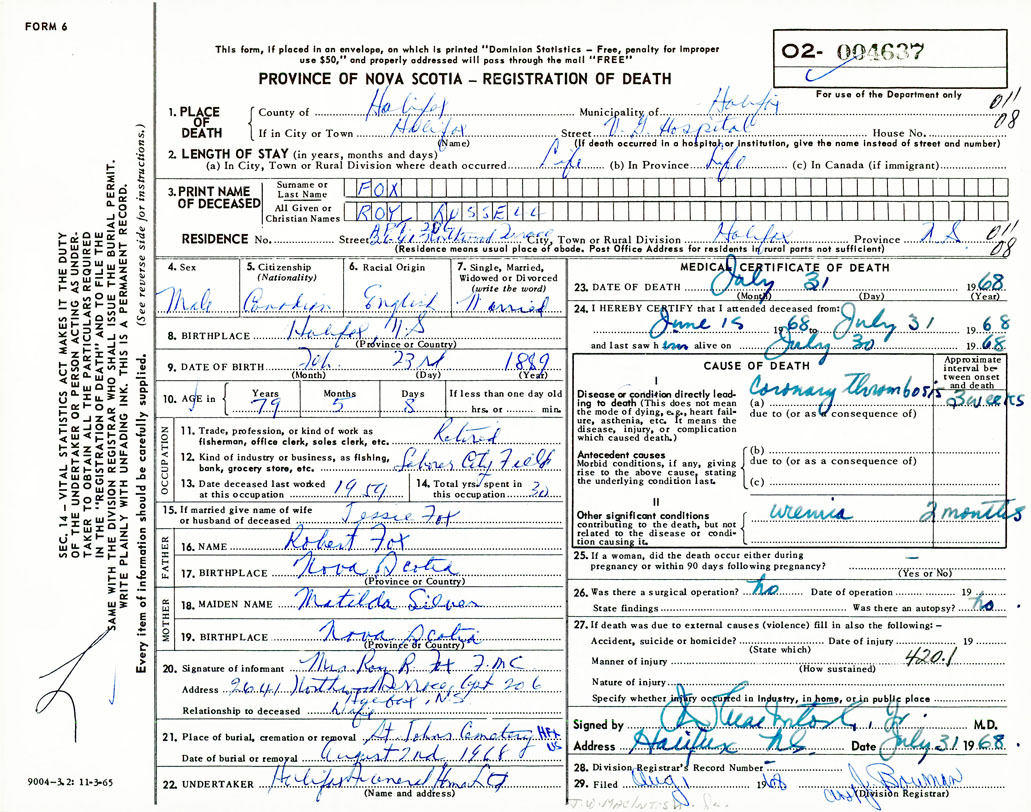 FORM 6
This form, if placed in an envelope, on which is printed "Dominion Statistics – Free, penalty for improper
use $50," and properly addressed will pass through the mail "FREE"
PROVINCE OF NOVA SCOTIA – REGISTRATION OF DEATH
02- 004637
For use of the Department only
011
08
1. PLACE OF DEATH
County of Halifax Municipality of Halifax
If in City or Town Halifax Street V. G. Hospital House No.
(Name) (If death occurred in a hospital or institution, give the name instead of street and number)
2. LENGTH OF STAY (in years, months and days)
(a) In City, Town or Rural Division where death occurred Life (b) In Province Life (c) In Canada (if immigrant)
3. PRINT NAME OF DECEASED
Surname or Last Name FOX
All Given or Christian Names ROY RUSSELL
APT. 206
RESIDENCE No. Street 2641 Northwood Terrace City, Town or Rural Division Halifax Province N S
011
08
(Residence means usual place of abode. Post Office Address for residents in rural parts not sufficient)
4. Sex Male
5. Citizenship (Nationality) Canadian
6. Racial Origin English
7. Single, Married, Widowed or Divorced (write the word) Married
8. BIRTHPLACE Halifax, N.S
(Province or Country)
9. DATE OF BIRTH Feb. 23rd 1889
(Month) (Day) (Year)
10. AGE in Years 79 Months 5 Days 8 If less than one day old hrs. or min.
OCCUPATION
11. Trade, profession or kind of work as fisherman, office clerk, sales clerk, etc. Retired
12. Kind of industry or business, as fishing, bank, grocery store, etc. Laborer City Field
13. Date deceased last worked at this occupation 1959
14. Total yrs. spent in this occupation 30
15. If married give name of wife or husband of deceased Jessie Fox
FATHER
16. NAME Robert Fox
17. BIRTHPLACE Nova Scotia
(Province or Country)
MOTHER
18. MAIDEN NAME Matilda Silver
19. BIRTHPLACE Nova Scotia
(Province or Country)
20. Signature of informant Mrs Roy R. Fox
Address 2641 Northwood Terrace, Apt 206
Halifax, N.S
Relationship to deceased Wife
21. Place of burial, cremation or removal St Johns Cemetery HFX
Date of burial or removal August 2nd, 1968
22. UNDERTAKER Halifax Funeral Home Ltd
(Name and address)
MEDICAL CERTIFICATE OF DEATH
23. DATE OF DEATH July 31 1968
(Month) (Day) (Year)
24. I HEREBY CERTIFY that I attended deceased from:
June 15 1968 to July 31 1968
and last saw him alive on July 30 1968
CAUSE OF DEATH
Approximate interval between onset and death
I
Disease or condition directly leading to death (This does not mean the mode of dying, e.g., heart failure, asthenia, etc. It means the disease, injury, or complication which caused death.)
(a) Coronary Thrombosis 3 weeks
due to (or as a consequence of)
Antecedent causes
Morbid conditions, if any, giving rise to the above cause, stating the underlying condition last.
(b)
due to (or as a consequence of)
(c)
II
Other significant conditions contributing to the death, but not related to the disease or condition causing it.
uremia 2 months
25. If a woman, did the death occur either during pregnancy or within 90 days following pregnancy? –
(Yes or No)
26. Was there a surgical operation? no Date of operation 19
State findings Was there an autopsy? no
27. If death was due to external causes (violence) fill in also the following: –
Accident, suicide or homicide? Date of injury 19
(State which)
Manner of injury 420.1
(How sustained)
Nature of injury
Specify whether injury occurred in Industry, in home, or in public place
Signed by Jr. M.D.
Address Halifax N.S. Date July 31 1968.
28. Division Registrar's Record Number
29. Filed Aug 1 1968 Bowman
(Division Registrar)
SEC. 14 – VITAL STATISTICS ACT MAKES IT THE DUTY
OF THE UNDERTAKER OR PERSON ACTING AS UNDER-
TAKER TO OBTAIN ALL THE PARTICULARS REQUIRED
IN THE "REGISTRATION OF DEATH" AND TO FILE THE
SAME WITH THE DIVISION REGISTRAR WHO SHALL ISSUE THE BURIAL PERMIT.
WRITE PLAINLY WITH UNFADING INK. THIS IS A PERMANENT RECORD.
Every item of information should be carefully supplied. (See reverse side for instructions.)
9004-3.2: 11-3-65